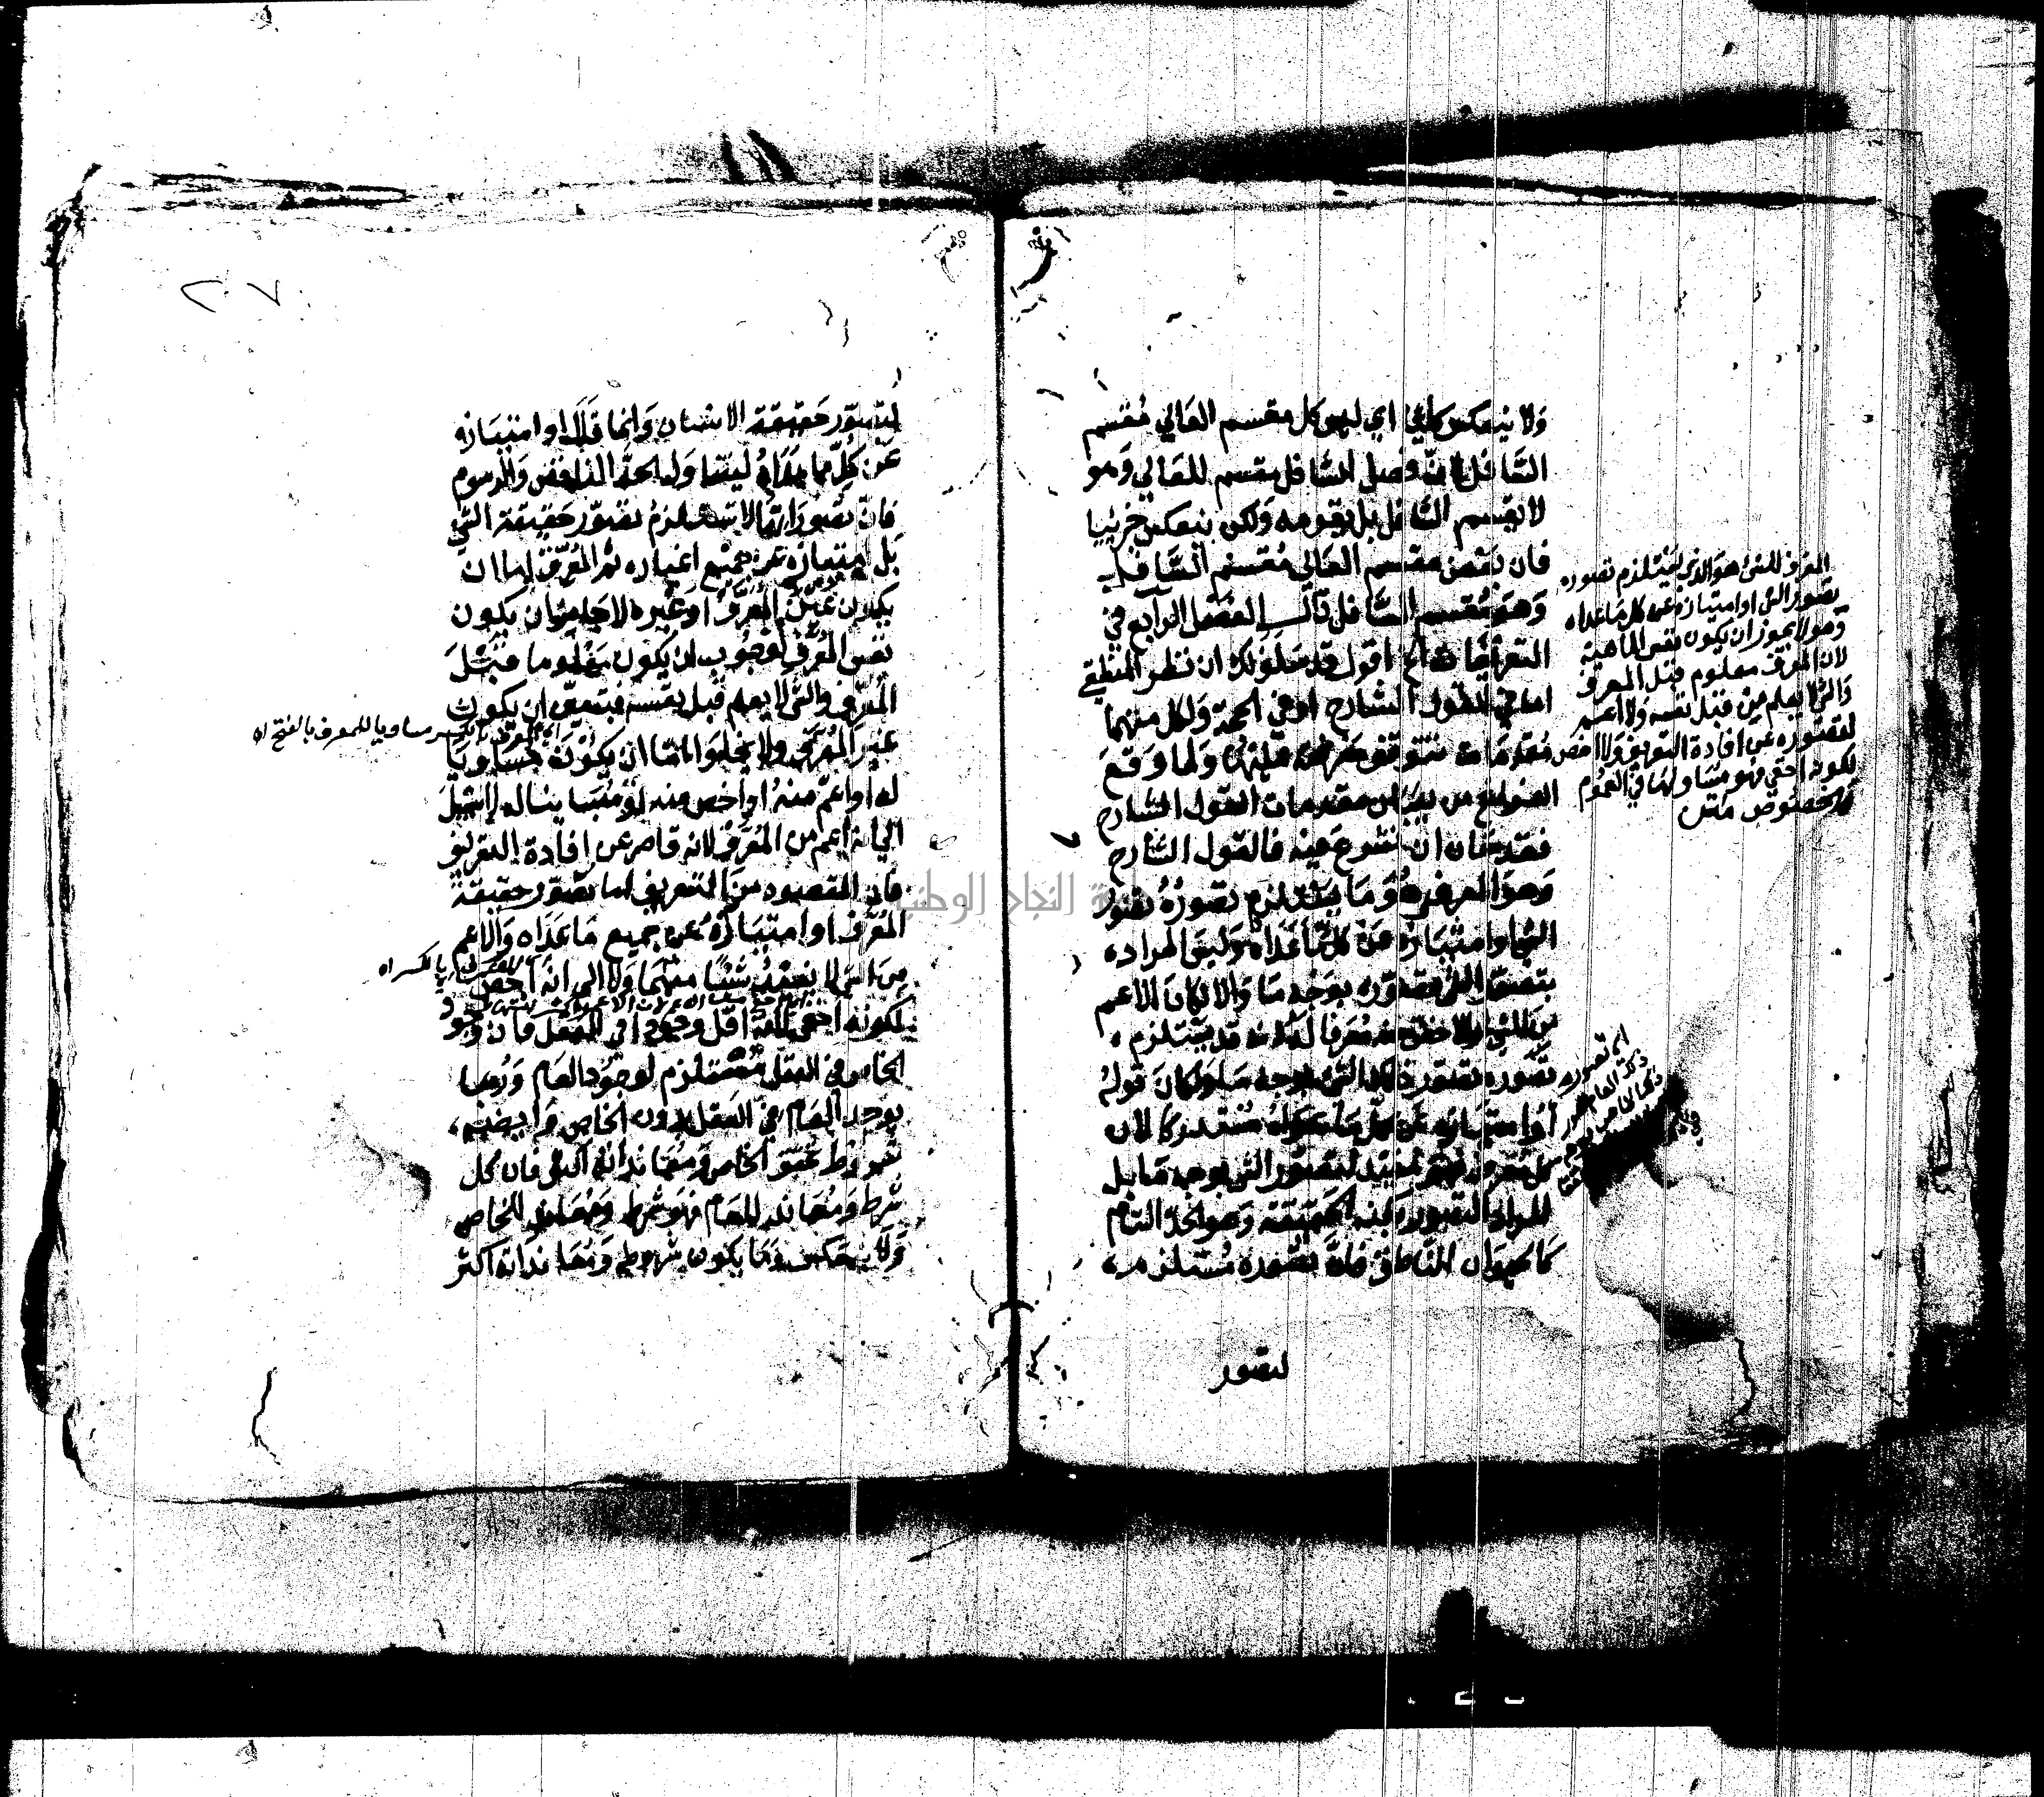 ولا ينعكس كليا اي ليس كل مقسم العالي مقسم
السافل لانّ فصل السافل مقسم للعالي وهو
لا يقسم السافل بل يقومه ولكن ينعكس جزئيا
فان بعض مقسم العالي مقسم السافل
وهو مقسم السافل قال الفصل الرابع في
التعريفات الخ اقول قد سلف لك ان نظر المنطقي
اما في القول الشارح او في الحجة ولكل منهما
مقدمات تتوقف معرفته عليها ولما وقع
الفراغ من بيان مقدمات القول الشارح
فقد حان ان نشرع فيه فالقول الشارح
وهو المعرف وهو ما يستلزم تصوره تصور
الشئ او امتيازه عن كل ما عداه وليس المراد
بتصور الشئ تصوره بوجه ما والا لكان الاعم
من الشئ والاخص منه معرفا لانه قد يستلزم
تصوره تصور ذلك الشئ بوجه ما ولكان قوله
او امتيازه عن كل ما عداه مستدركا لان
كل معرف فهو مفيد لتصور الشئ بوجه ما بل
المراد التصور بكنه الحقيقة وهو الحد التام
كالحيوان الناطق فانّ تصوره مستلزم
لتصور
المعرف للشئ هو الذي يستلزم تصوره
تصور الشئ او امتيازه عن كل ما عداه
وهو لا يجوز ان يكون نفس الماهية
لان المعرف معلوم قبل المعرف
والشئ لا يعلم من قبل نفسه ولا اعم
لقصوره عن افادة التعريف ولا اخص
لكونه اخفى فهو مساو لها في العموم
والخصوص متن
٢٠٧
لتصور حقيقة الانسان وانما قال او امتيازه
عن كل ما عداه ليتناول الحد الناقص والرسوم
فانّ تصوراتها لا تستلزم تصور حقيقة الشئ
بل امتيازه عن جميع اغياره ثم المعرف اما ان
يكون عين المعرف او غيره لا جائز ان يكون
نفس المعرف لوجوب ان يكون معلوما قبل
المعرف والشئ لا يعلم قبل نفسه فتعين ان يكون
غير المعرف ولا يخلوا اما ان يكون مساويا
اي المعرف بالكسر مساويا للمعرف بالفتح اه
له او اعم منه او اخص منه او مباينا له لا سبيل
الي انه اعم من المعرف لانه قاصر عن افادة التعريف
فان المقصود من التعريف اما تصور حقيقة
المعرف او امتيازه عن جميع ما عداه والاعم
من الشئ لا يفيد شيئا منهما ولا الى انه اخص
بالكسر اه
لكونه اخفى لانه اقل وجودا في العقل فان وجود
الخاص في العقل مستلزم لوجود العام وربما
يوجد العام في العقل بدون الخاص وايضا
شروط تحقق الخاص ومعانداته اكثر فان كل
شرط ومعاند للعام فهو شرط ومعاند للخاص
ولا ينعكس وما يكون شروطه ومعانداته اكثر